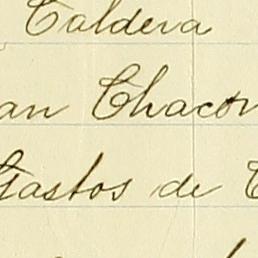 Caldera
an Chacon
Gastos de C